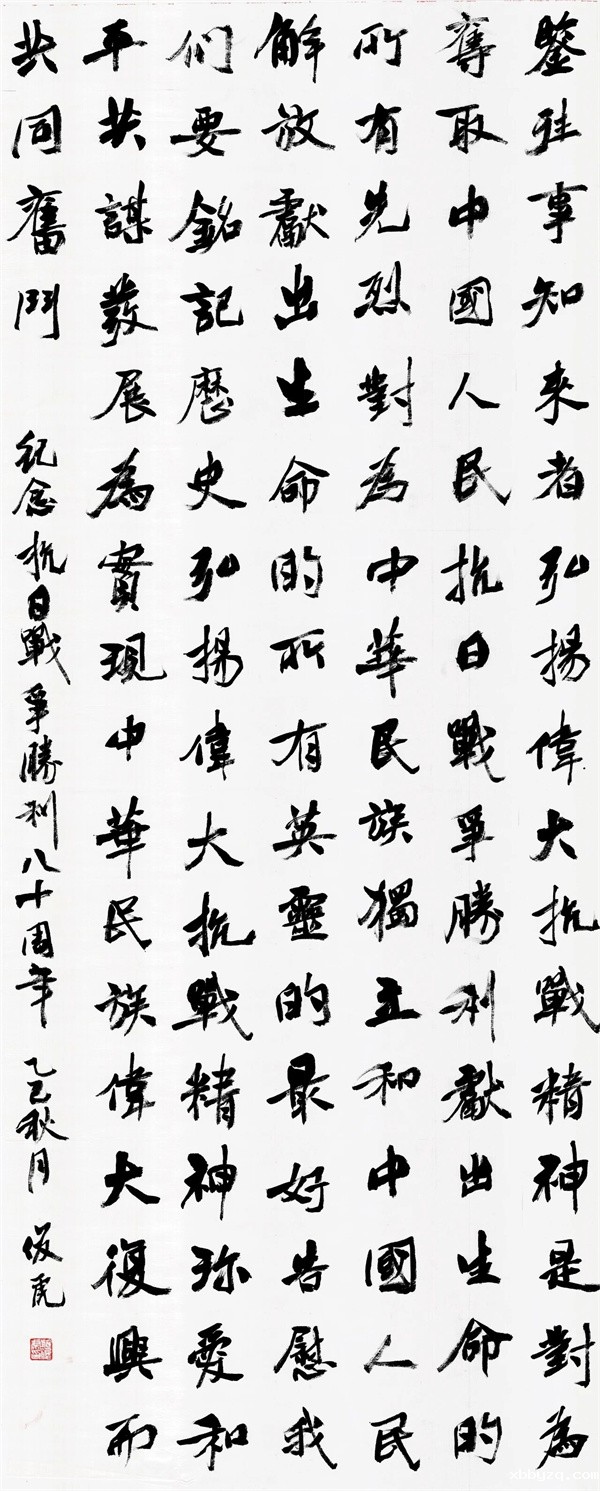 鑒往事知來者弘揚偉大抗戰精神是對為
奪取中國人民抗日戰爭勝利獻出生命的
所有先烈對為中華民族獨立和中國人民
解放獻出生命的所有英靈的最好告慰我
们要銘記歷史弘揚偉大抗戰精神珎愛和
平共謀發展為實現中華民族偉大復興而
共同奮鬥
紀念抗日戰爭勝利八十周年 乙巳秋月 俊虎
xbbyzq.com